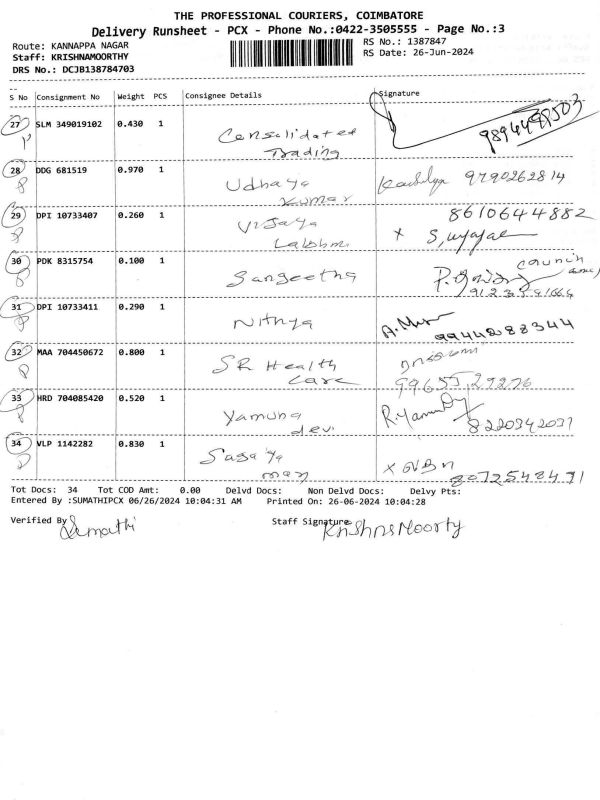 THE PROFESSIONAL COURIERS, COIMBATORE
Delivery Runsheet - PCX - Phone No.:0422-3505555 - Page No.:3
Route: KANNAPPA NAGAR
RS No.: 1387847
Staff: KRISHNAMOORTHY
RS Date: 26-Jun-2024
DRS No.: DCJB138784703
S No Consignment No Weight PCS Consignee Details Signature
27 SLM 349019102 0.430 1 Consalidated
Trading
28 DDG 681519 0.970 1 Udhaya 9790262814
Kumar
29 DPI 10733407 0.260 1 Vijaya 8610644882
Lakshmi X
30 PDK 8315754 0.100 1 Sangeetha
31 DPI 10733411 0.290 1 Nithya 9944288344
32 MAA 704450672 0.800 1 SR Health
Care 99655 27276
33 HRD 704085420 0.520 1 Yamuna
devi 8220342031
34 VLP 1142282 0.830 1 Sagaya
mary X 8072548471
Tot Docs: 34 Tot COD Amt: 0.00 Delvd Docs: Non Delvd Docs: Delvy Pts:
Entered By :SUMATHIPCX 06/26/2024 10:04:31 AM Printed On: 26-06-2024 10:04:28
Verified By Sumathi Staff Signature KrishnsMoorty